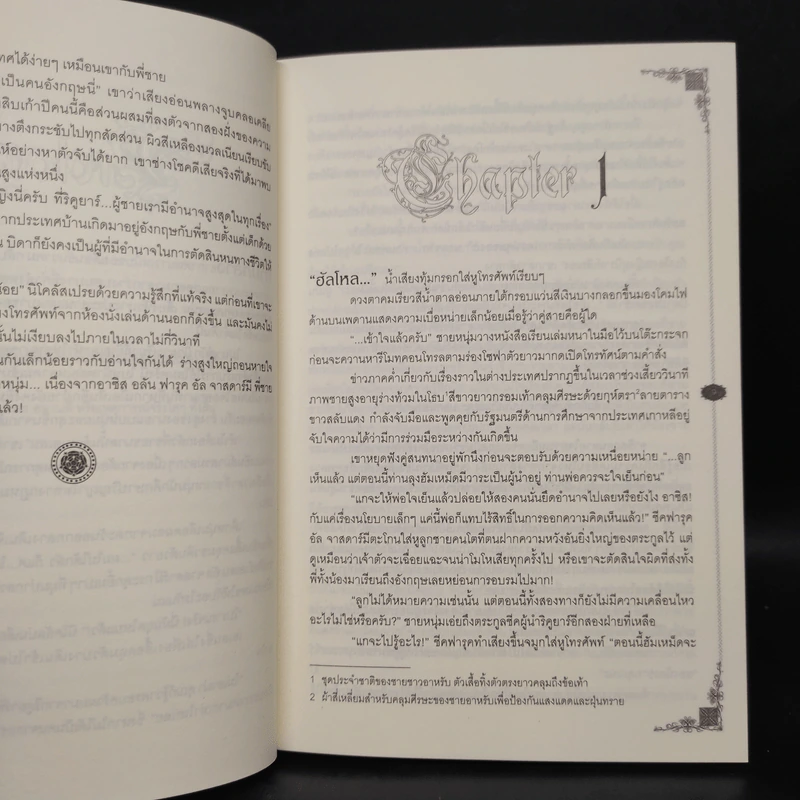 ทศได้ง่ายๆ เหมือนเขากับพี่ชาย
เป็นคนอังกฤษนี่" เขาว่าเสียงอ่อนพลางจูบคลอเคลีย
สิบเก้าปีคนนี้คือส่วนผสมที่ลงตัวจากสองฝั่งของความ
างตึงกระชับไปทุกสัดส่วน ผิวสีเหลืองนวลเนียนเรียบขับ
ห้อย่างหาตัวจับได้ยาก เขาช่างโชคดีเสียจริงที่ได้มาพบ
สูงแห่งหนึ่ง
ญิงนี่ครับ ที่ริคูยาร์...ผู้ชายเรามีอำนาจสูงสุดในทุกเรื่อง"
ากประเทศบ้านเกิดมาอยู่อังกฤษกับพี่ชายตั้งแต่เด็กด้วย
น บิดาก็ยังคงเป็นผู้ที่มีอำนาจในการตัดสินหนทางชีวิตให้
น้อย" นิโคลัสเปรยด้วยความรู้สึกที่แท้จริง แต่ก่อนที่เขาจะ
ยงโทรศัพท์จากห้องนั่งเล่นด้านนอกก็ดังขึ้น และมันคงไม่
นั้นไม่เงียบลงไปภายในเวลาไม่กี่วินาที
นกันเล็กน้อยราวกับอ่านใจกันได้ ร่างสูงใหญ่ถอนหายใจ
หนุ่ม... เนื่องจากอาซิส อลัน ฟารุค อัล จาสดาร์มี พี่ชาย
แล้ว!
Chapter 1
"ฮัลโหล..." น้ำเสียงทุ้มกรอกใส่หูโทรศัพท์เรียบๆ
ดวงตาคมเรียวสีน้ำตาลอ่อนภายใต้กรอบแว่นสีเงินบางกลอกขึ้นมองโคมไฟ
ด้านบนเพดานแสดงความเบื่อหน่ายเล็กน้อยเมื่อรู้ว่าคู่สายคือผู้ใด
"...เข้าใจแล้วครับ" ชายหนุ่มวางหนังสือเรียนเล่มหนาในมือไว้บนโต๊ะกระจก
ก่อนจะควานหารีโมทคอนโทรลตามร่องโซฟาตัวยาวมากดเปิดโทรทัศน์ตามคำสั่ง
ข่าวภาคค่ำเกี่ยวกับเรื่องราวในต่างประเทศปรากฏขึ้นในเวลาช่วงเสี้ยววินาที
ภาพชายสูงอายุร่างท้วมในโธบ¹สีขาวยาวกรอมเท้าคลุมศีรษะด้วยกุห์ตรา²ลายตาราง
ขาวสลับแดง กำลังจับมือและพูดคุยกับรัฐมนตรีด้านการศึกษาจากประเทศเกาหลีอยู่
จับใจความได้ว่ามีการร่วมมือระหว่างกันเกิดขึ้น
เขาหยุดฟังคู่สนทนาอยู่พักนึงก่อนจะตอบรับด้วยความเหนื่อยหน่าย "...ลูก
เห็นแล้ว แต่ตอนนี้ท่านลุงฮัมเหม็ดมีวาระเป็นผู้นำอยู่ ท่านพ่อควรจะใจเย็นก่อน"
"แกจะให้พ่อใจเย็นแล้วปล่อยให้สองคนนั่นยึดอำนาจไปเลยหรือยังไง อาซิส!
กับแค่เรื่องนโยบายเล็กๆ แค่นี้พ่อก็แทบไร้สิทธิ์ในการออกความคิดเห็นแล้ว!" ชีคฟารุค
อัล จาสดาร์มีตะโกนใส่หูลูกชายคนโตที่ตนฝากความหวังอันยิ่งใหญ่ของตระกูลไว้ แต่
ดูเหมือนว่าเจ้าตัวจะเฉื่อยแฉะจนน่าโมโหเสียทุกครั้งไป หรือเขาจะตัดสินใจผิดที่ส่งทั้ง
พี่ทั้งน้องมาเรียนถึงอังกฤษเลยหย่อนการอบรมไปมาก!
"ลูกไม่ได้หมายความเช่นนั้น แต่ตอนนี้ทั้งสองทางก็ยังไม่มีความเคลื่อนไหว
อะไรไม่ใช่หรือครับ?" ชายหนุ่มเอ่ยถึงตระกูลชีคผู้นำริคูยาร์อีกสองฝ่ายที่เหลือ
"แกจะไปรู้อะไร!" ชีคฟารุคทำเสียงขึ้นจมูกใส่หูโทรศัพท์ "ตอนนี้ฮัมเหม็ดจะ
1 ชุดประจำชาติของชายชาวอาหรับ ตัวเสื้อทิ้งตัวตรงยาวคลุมถึงข้อเท้า
2 ผ้าสี่เหลี่ยมสำหรับคลุมศีรษะของชายอาหรับเพื่อป้องกันแสงแดดและฝุ่นทราย